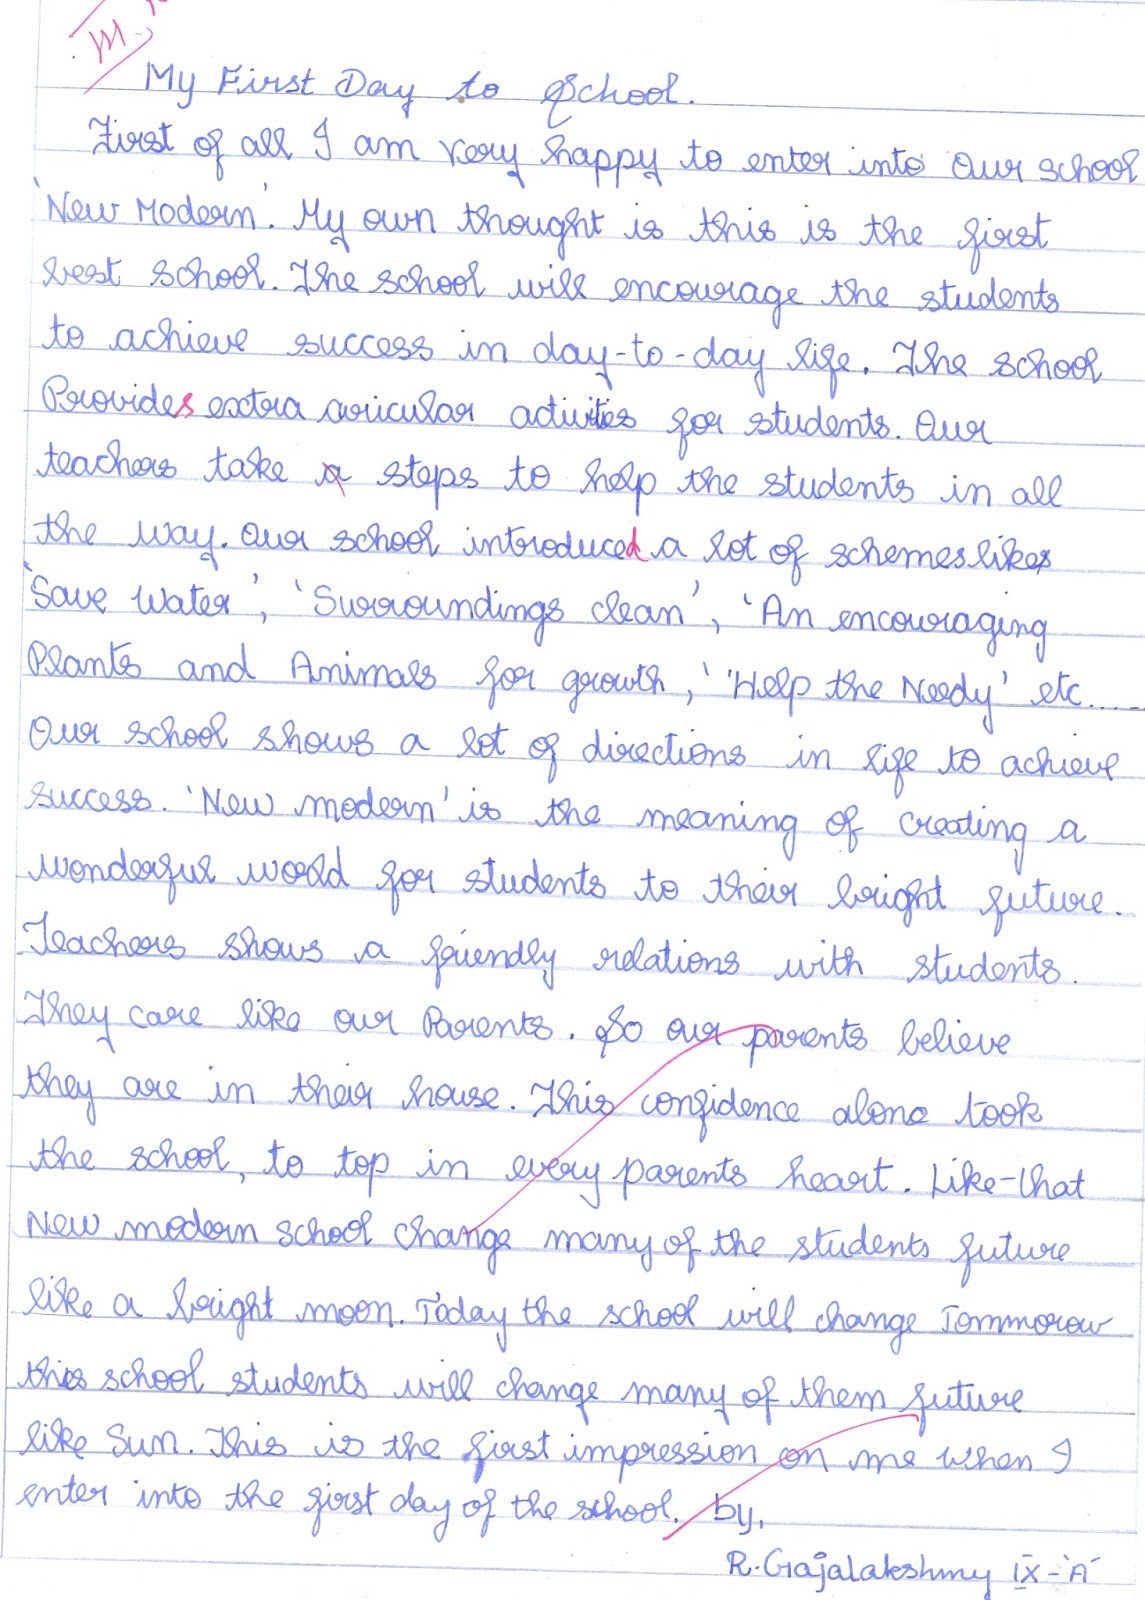 My First Day to School.
First of all I am very happy to enter into our school
'New Modern'. My own thought is this is the first
best school. The school will encourage the students
to achieve success in day-to-day life. The school
Provides extra curicular activities for students. Our
teachers take steps to help the students in all
the way. Our school introduced a lot of schemes like
'Save Water', 'Surroundings clean', 'An encouraging
Plants and Animals for growth,' 'Help the Needy' etc.....
Our school shows a lot of directions in life to achieve
success. 'New modern' is the meaning of creating a
wonderful world for students to their bright future.
Teachers shows a friendly relations with students.
They care like our Parents. So our parents believe
they are in their house. This confidence alone took
the school, to top in every parents heart. Like-that
New modern school change many of the students future
like a bright moon. Today the school will change Tommorow
this school students will change many of them future
like Sun. This is the first impression on me when I
enter into the first day of the school. by,
R. Gajalakshmy IX-'A'